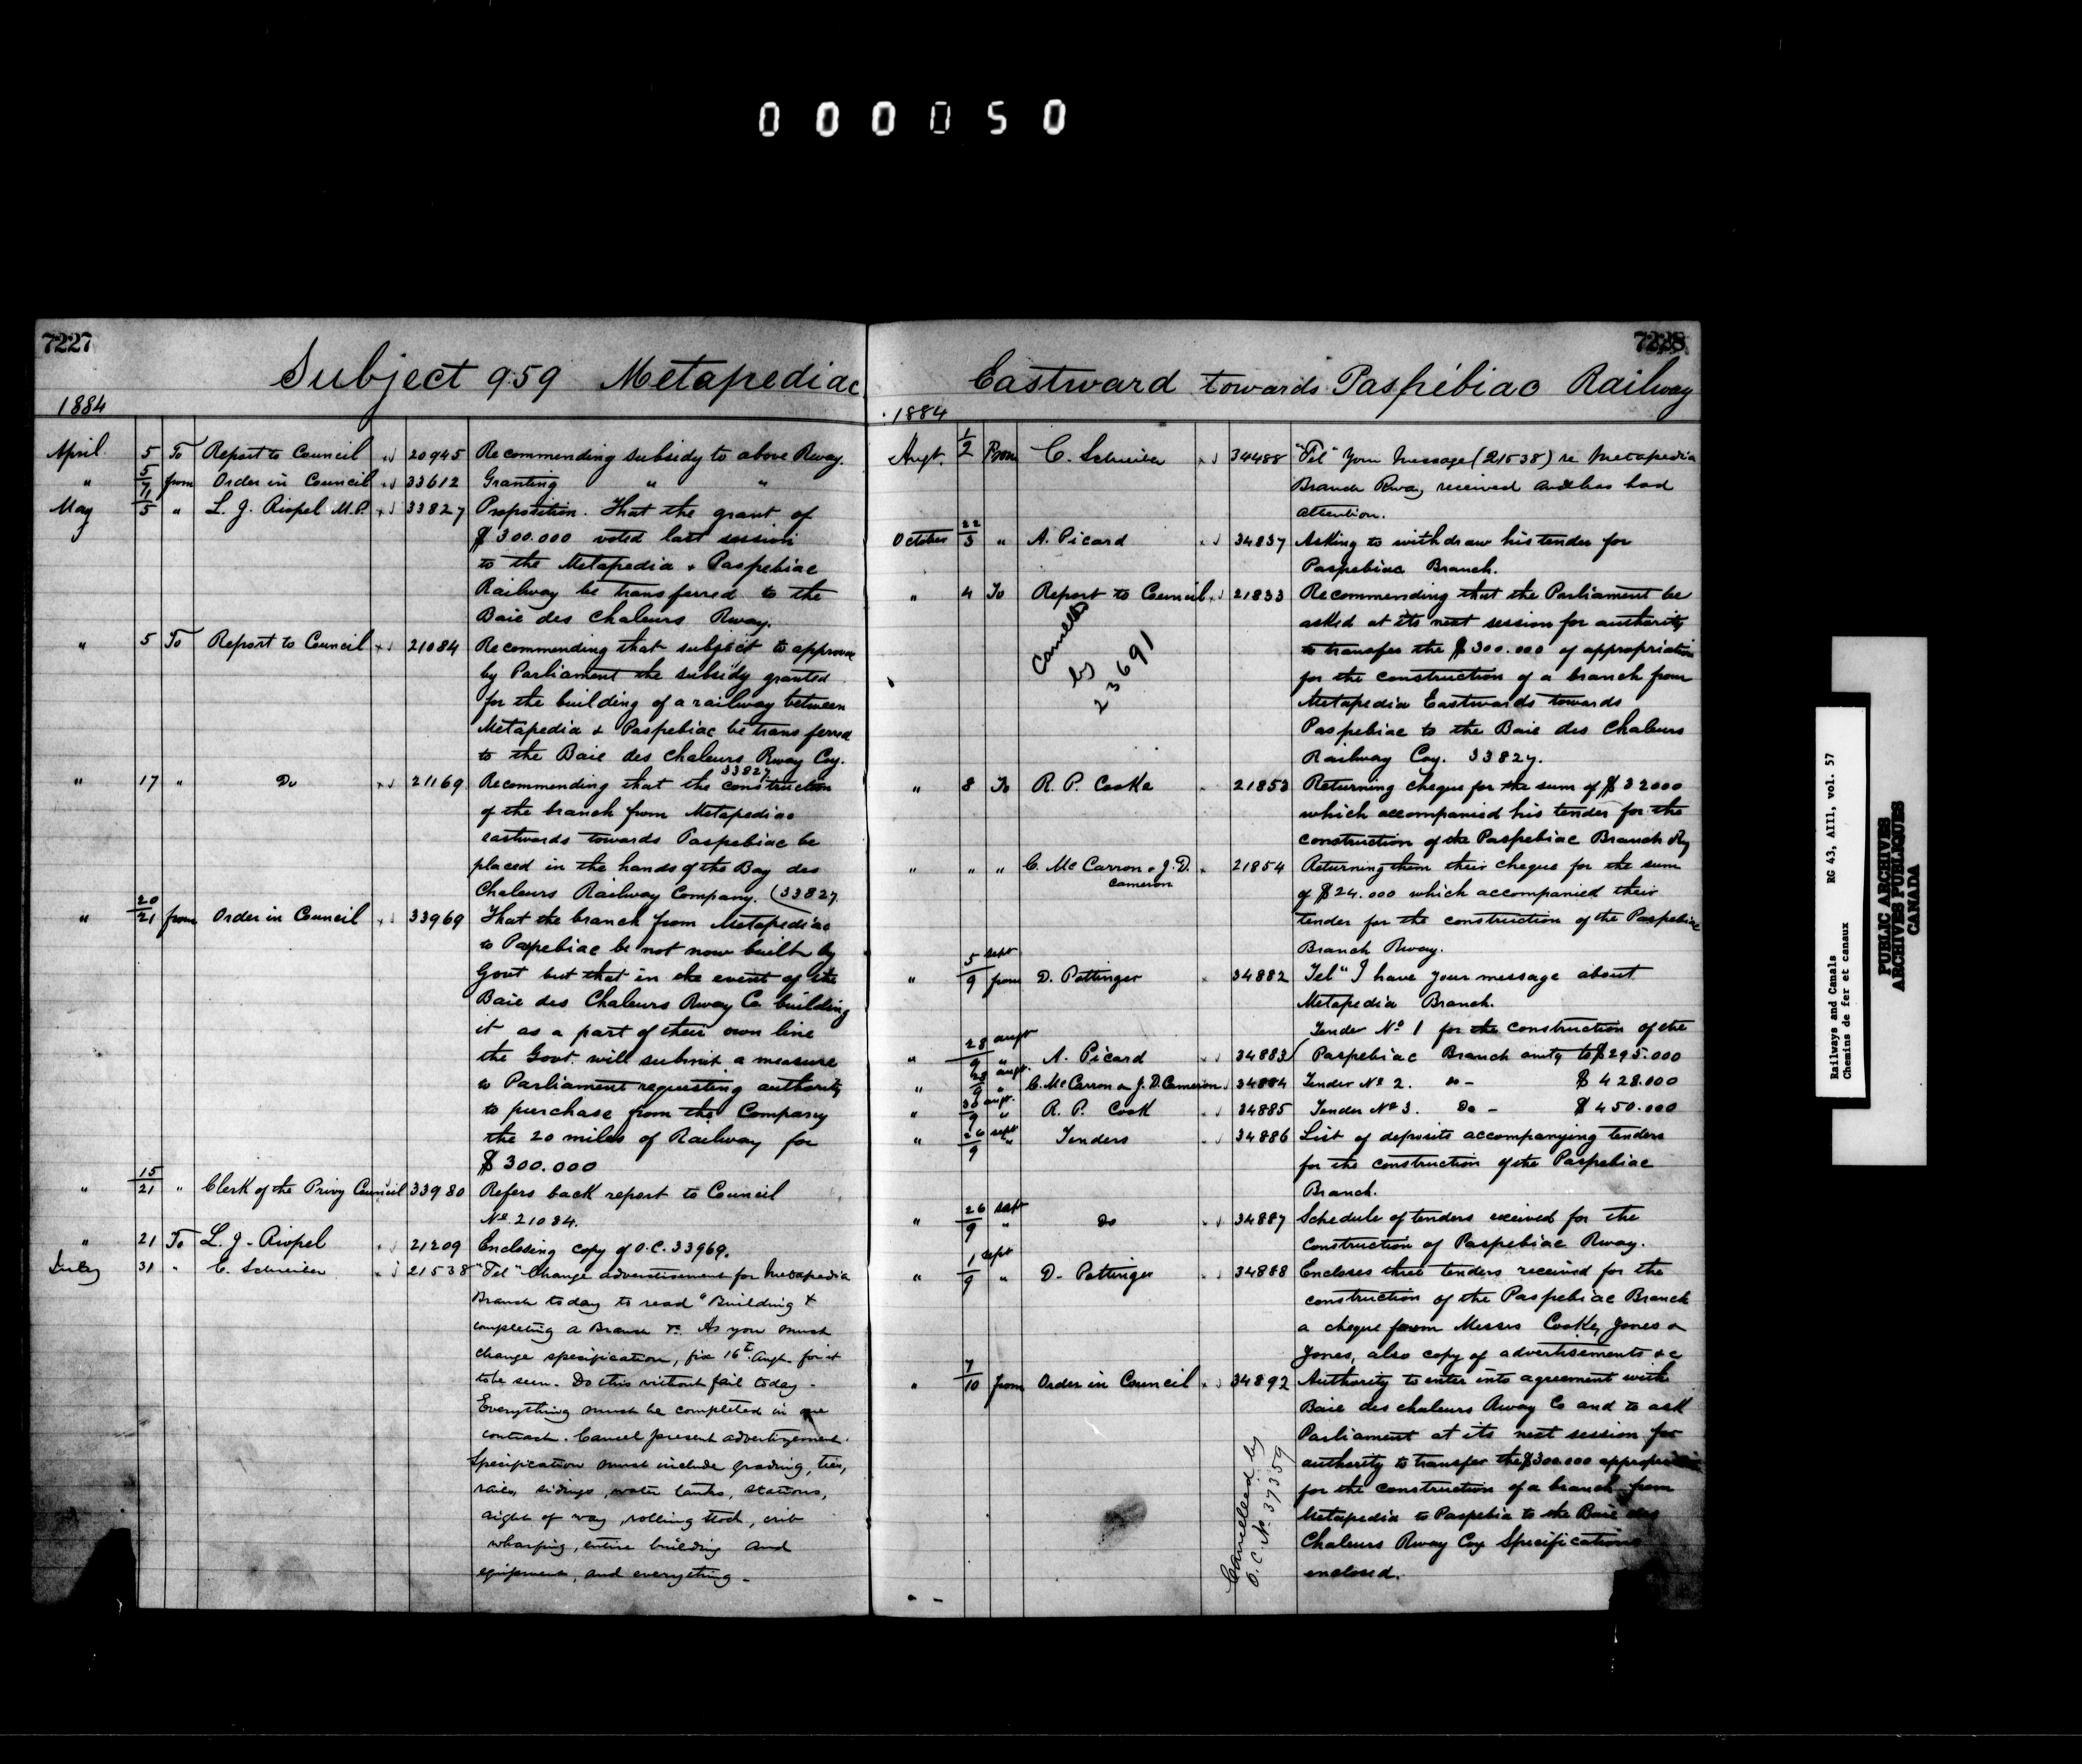 000050
7227
Subject 959 Metapediac
1884
April 5 To Report to Council 20945 Recommending subsidy to above Rway.
" 5/7 from Order in Council 33612 Granting " "
May 1/5 " L. J. Riopel M.P. 33827 Proposition. That the grant of
$300.000 voted last session
to the Metapedia & Paspebiac
Railway be transferred to the
Baie des Chaleurs Rway.
" 5 To Report to Council 21084 Recommending that subject to approval
by Parliament the subsidy granted
for the building of a railway between
Metapedia & Paspebiac be transferred
to the Baie des Chaleurs Rway Coy.
33827
" 17 " Do 21169 Recommending that the construction
of the branch from Metapediac
eastwards towards Paspebiac be
placed in the hands of the Bay des
Chaleurs Railway Company. (33827
" 20/21 from Order in Council 33969 That the branch from Metapediac
to Paspebiac be not now built by
Govt but that in the event of the
Baie des Chaleurs Rway Co building
it as a part of their own line
the Govt will submit a measure
to Parliament requesting authority
to purchase from the Company
the 20 miles of Railway for
$300.000
" 15/21 " Clerk of the Privy Council 33980 Refers back report to Council
No 21084.
" 21 To L. J. Riopel 21209 Enclosing copy of O.C. 33969.
July 31 " C. Schreiber 21538 "Tel" Change advertisement for Metapedia
Branch today to read "Building &
completing a Branch &c. As you must
change specification, fix 16th Augt. for it
to be seen. Do this without fail today.
Everything must be completed in one
contract. Cancel present advertizement.
Specification must include grading, ties,
rails, sidings, water tanks, stations,
right of way, rolling stock, crib
wharfing, entire building and
equipment, and everything.
7228
Eastward towards Paspébiac Railway
1884
Augt. 1/2 From C. Schreiber 34488 "Tel" Your Message (21538) re Metapedia
Branch Rway received and has had
attention.
October 22/3 " A. Picard 34837 Asking to withdraw his tender for
Paspebiac Branch.
" 4 To Report to Council 21833 Recommending that the Parliament be
asked at its next session for authority
to transfer the $300.000 of appropriation
for the construction of a branch from
Metapedia Eastwards towards
Paspebiac to the Baie des Chaleurs
Railway Coy. 33827.
Cancelled
by
23691
" 8 To R. P. Cooke 21853 Returning cheque for the sum of $32000
which accompanied his tender for the
construction of the Paspebiac Branch Ry
" " " C. McCarron & J.D. Cameron 21854 Returning them their cheque for the sum
of $24.000 which accompanied their
tender for the construction of the Paspebiac
Branch Rway.
" 5 sept/9 from D. Pottinger 34882 Tel" I have your message about
Metapedia Branch.
" 28 augt/9 " A. Picard 34883 (Tender No 1 for the construction of the
Paspebiac Branch amtg to $295.000
" 28 augt./9 " C. McCarron & J.D. Cameron 34884 Tender No 2. do - $428.000
" 30 augt./9 " R. P. Cook 34885 Tender No 3. Do - $450.000
" 26 sept/9 " Tenders 34886 List of deposits accompanying tenders
for the construction of the Paspebiac
Branch.
" 26 sept/9 " Do 34887 Schedule of tenders received for the
Construction of Paspebiac Rway.
" 1 sept/9 " D. Pottinger 34888 Encloses three tenders received for the
construction of the Paspebiac Branch
a cheque from Messrs Cooke, Jones &
Jones, also copy of advertisements &c
" 7/10 from Order in Council 34892 Authority to enter into agreement with
Baie des chaleurs Rway Co and to ask
Parliament at its next session for
authority to transfer the $300.000 appropriation
for the construction of a branch from
Metapedia to Paspebia to the Baie des
Chaleurs Rway Coy Specifications
enclosed.
Cancelled by
O.C. No. 37359
Railways and Canals RG 43, AIII, vol. 57
Chemins de fer et canaux
PUBLIC ARCHIVES
ARCHIVES PUBLIQUES
CANADA